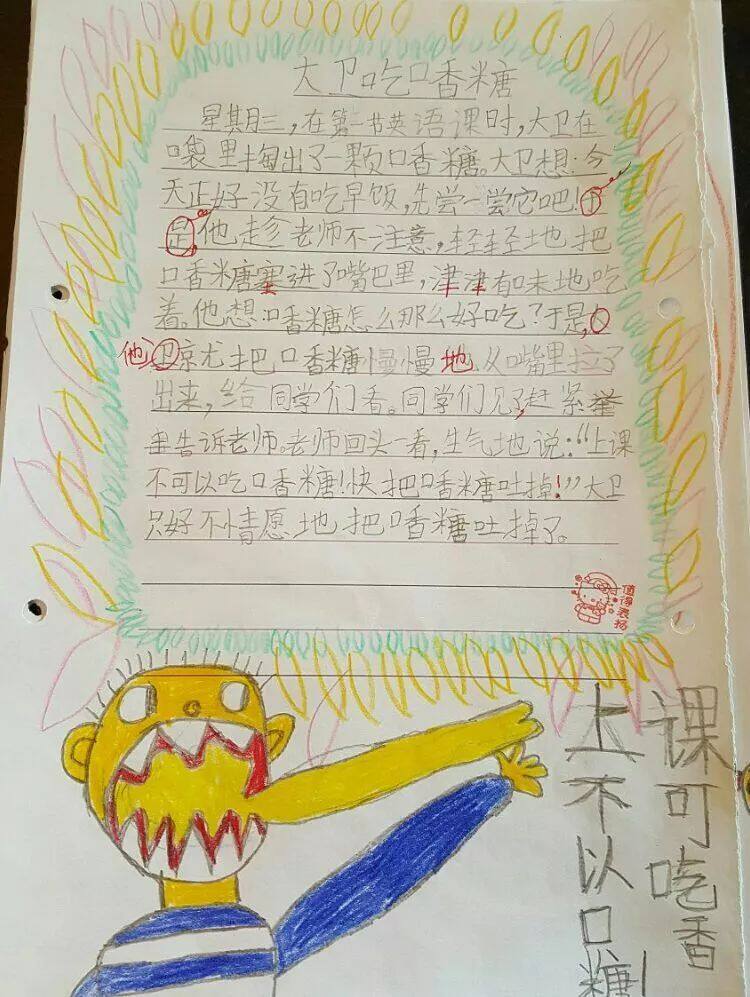 大卫吃口香糖
星期三，在第一节英语课时，大卫在
口袋里掏出了一颗口香糖。大卫想：今
天正好没有吃早饭，先尝一尝它吧！于
是，他趁老师不注意，轻轻地把
口香糖塞进了嘴巴里，津津有味地吃
着。他想：口香糖怎么那么好吃？于是，
他卫就把口香糖慢慢地从嘴里拉了
出来，给同学们看。同学们见了赶紧举
手告诉老师。老师回头一看，生气地说：“上课
不可以吃口香糖！快把口香糖吐掉！”大卫
只好不情愿地把口香糖吐掉了。
值得表扬
上课
不可
以吃
口香
糖！